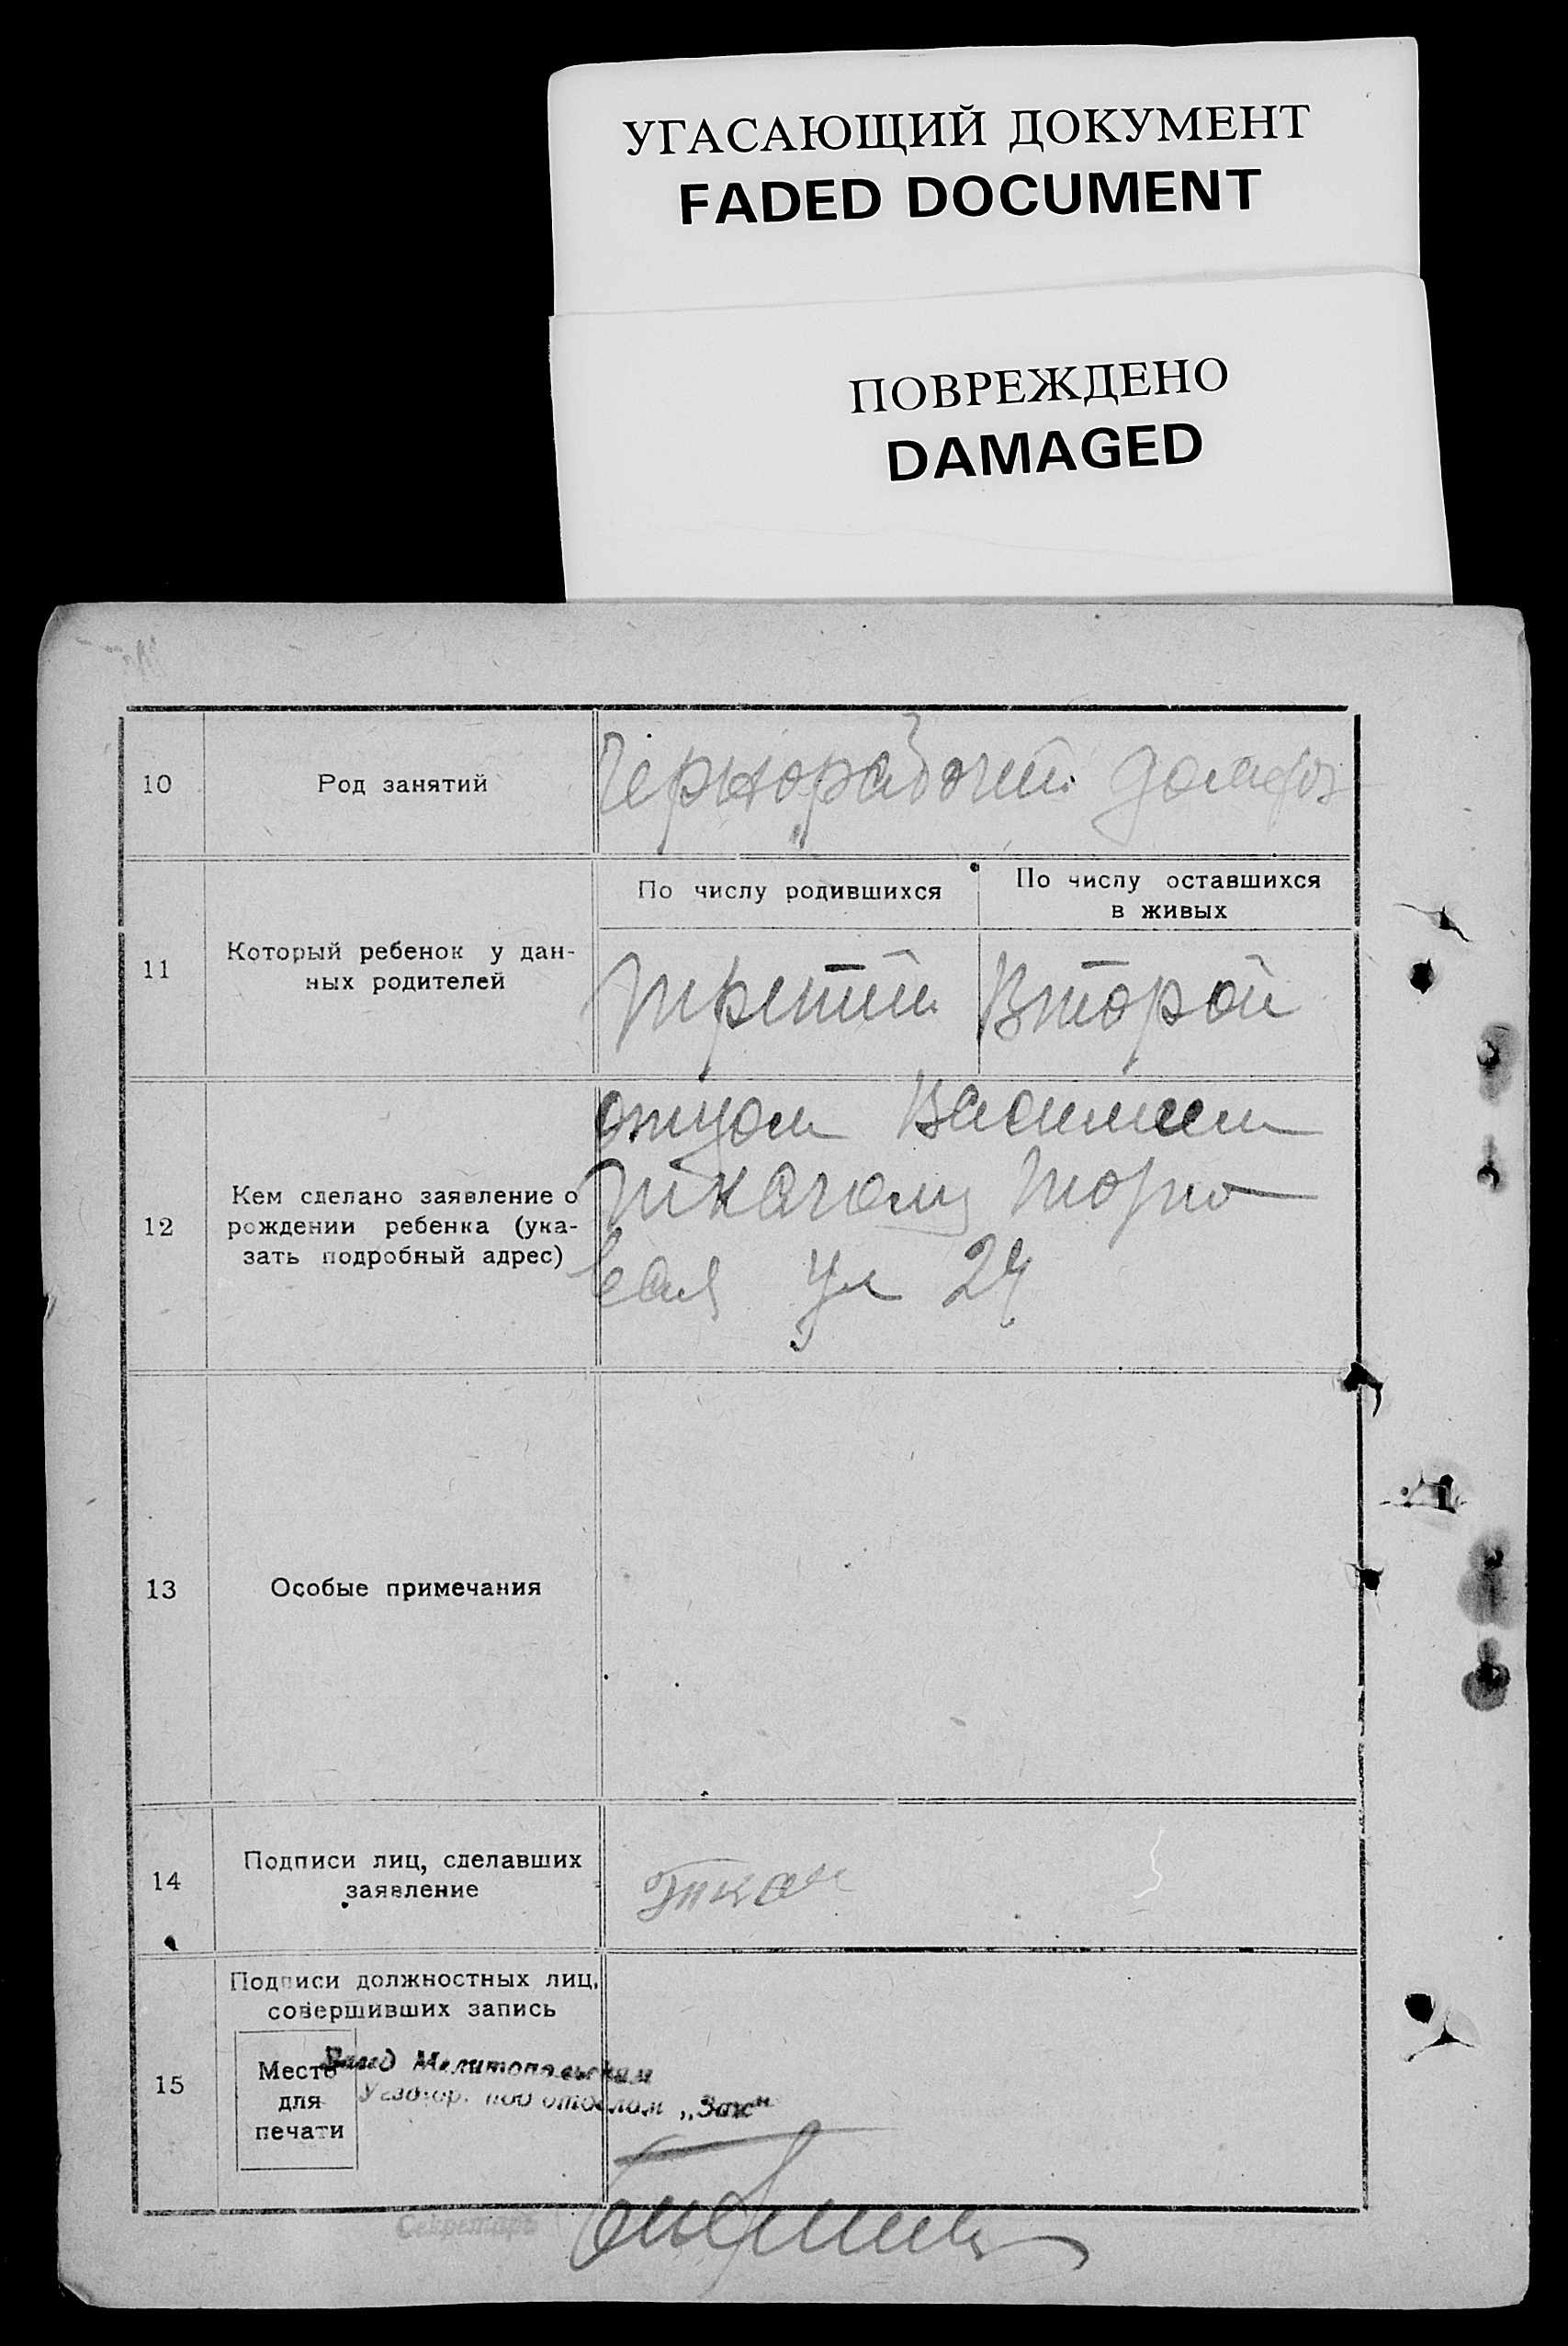 УГАСАЮЩИЙ ДОКУМЕНТ
FADED DOCUMENT
ПОВРЕЖДЕНО
DAMAGED
10
Род занятий
Чернорабочий домохоз
11
Который ребенок у дан-
ных родителей
По числу родившихся
По числу оставшихся
в живых
третий
Второй
12
Кем сделано заявление о
рождении ребенка (ука-
зать подробный адрес)
отцом Василием
Ткачом Торго
вая ул 24
13
Особые примечания
14
Подписи лиц, сделавших
заявление
Ткач
15
Подписи должностных лиц,
совершивших запись
Место
для
печати
Завед Мелитопольским
Уездгор. подотделом „Загс“
Секретарь